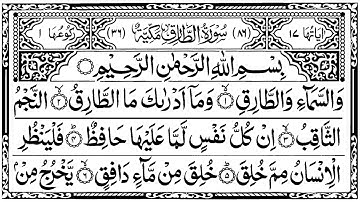 اٰیَاتُهَا ١٧ (٨٦) سُوْرَةُ الطَّارِقِ مَكِّیَّةٌ (٣٦) رُكُوْعُهَا ١
بِسْمِ اللّٰهِ الرَّحْمٰنِ الرَّحِیْمِ
وَالسَّمَآءِ وَالطَّارِقِ ١ وَمَاۤ اَدْرٰىكَ مَا الطَّارِقُ ٢ النَّجْمُ
الثَّاقِبُ ٣ اِنْ كُلُّ نَفْسٍ لَّمَّا عَلَیْهَا حَافِظٌ ٤ فَلْیَنْظُرِ
الْاِنْسَانُ مِمَّ خُلِقَ ٥ خُلِقَ مِنْ مَّآءٍ دَافِقٍ ٦ یَّخْرُجُ مِنْۢ